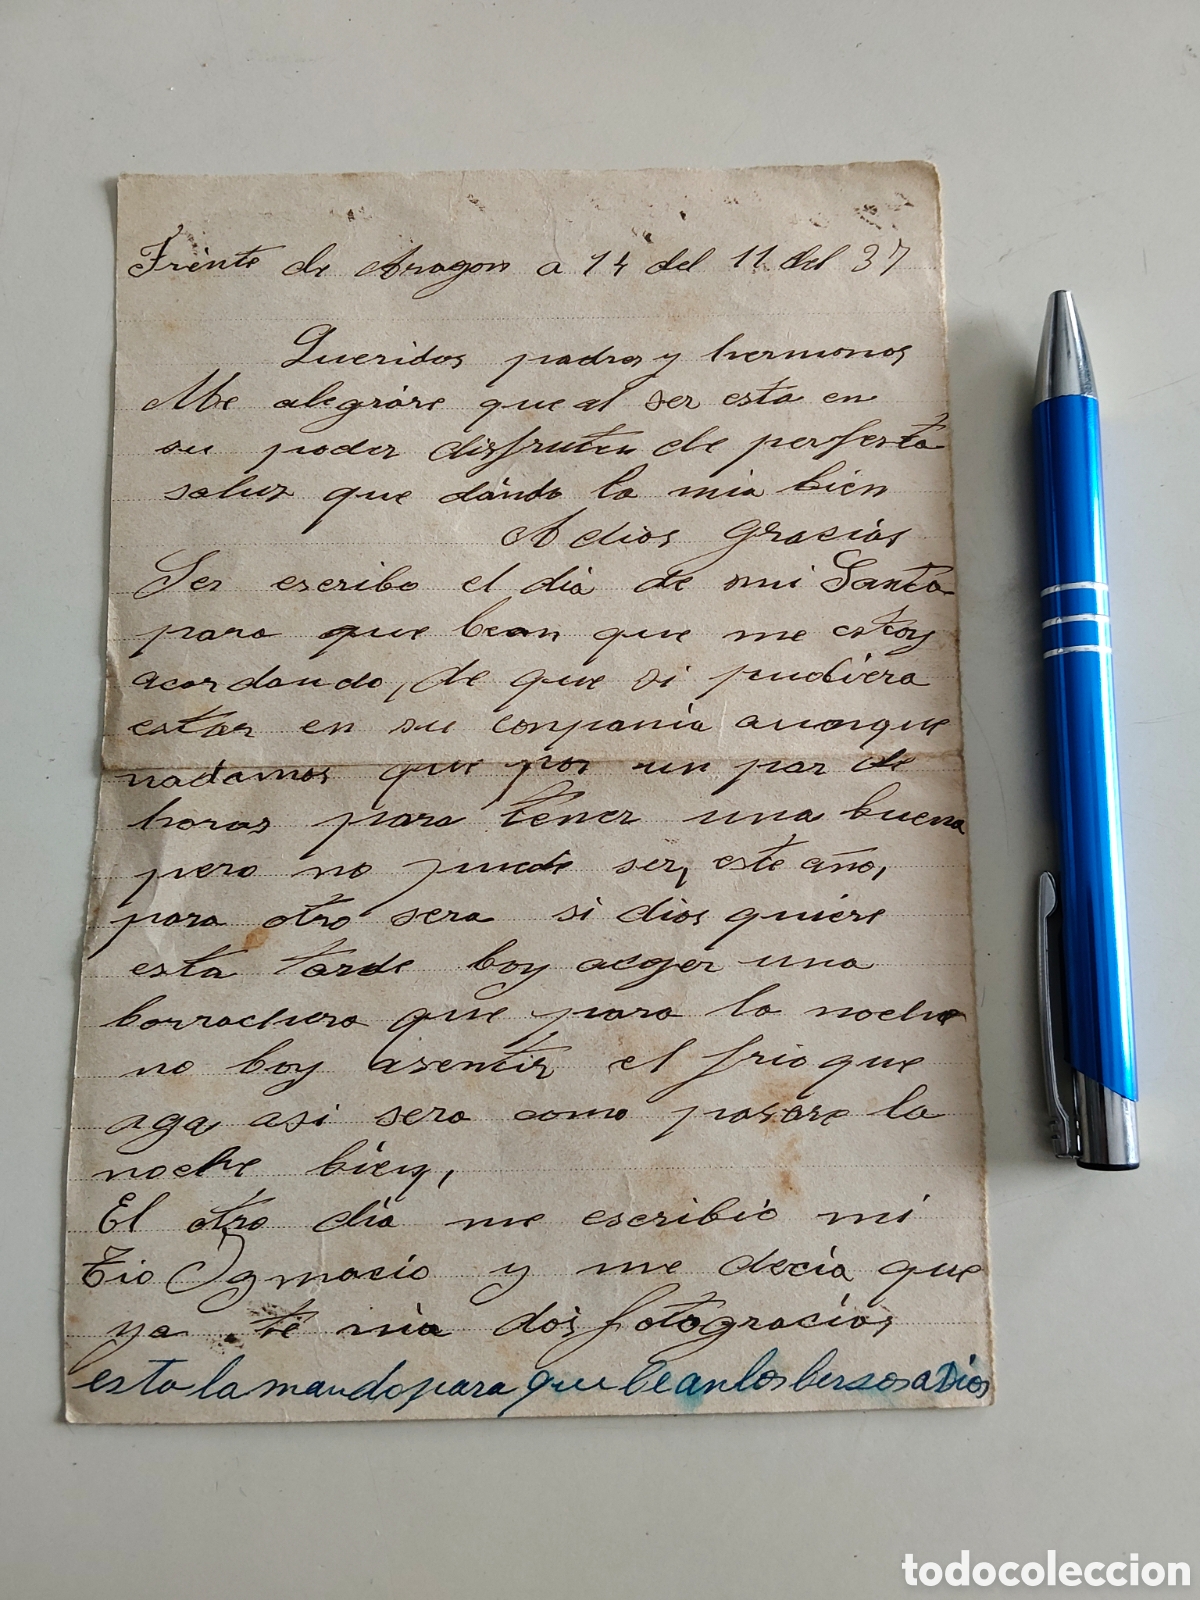 Frente de Aragon a 14 del 11 del 37
Queridos padres y hermonos
Me alegrare que al ser esta en
su poder disfruten de perfesta
saluz que dando la mia bien
A dios gracias
Les escribo el dia de mi Santo
para que bean que me estoy
acordando, de que si pudiera
estar en su conpania aunque
nadamos que por un par de
horas para tener una buena
pero no puede ser, este año,
para otro sera si dios quiere
esta tarde boy acger una
borrachera que para la noche
no boy asentir el frio que
aga asi sera como pasare la
noche bien,
El otro dia me escribio mi
Tio Ygmacio y me decia que
ya te nia dos fotogracias
esta la mando para que bean los bersos adios
todocoleccion